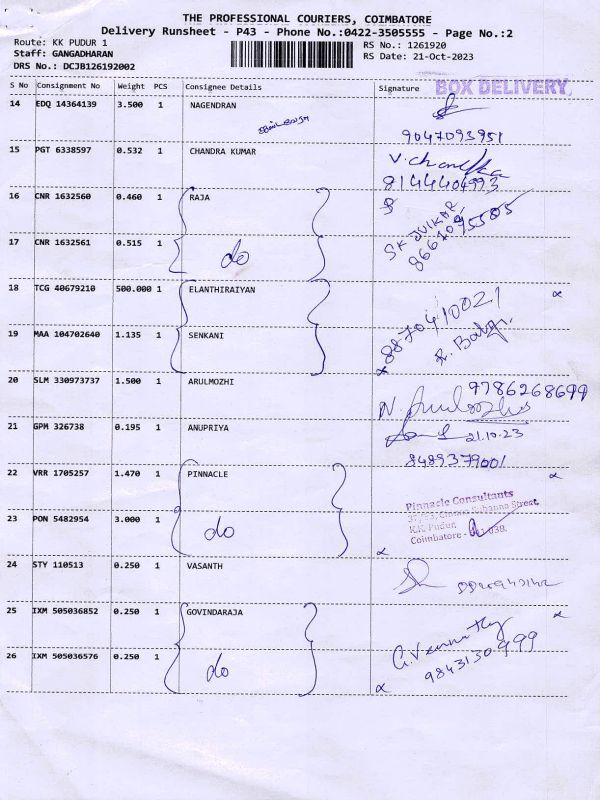 THE PROFESSIONAL COURIERS, COIMBATORE
Delivery Runsheet - P43 - Phone No.:0422-3505555 - Page No.:2
Route: KK PUDUR 1
RS No.: 1261920
Staff: GANGADHARAN
RS Date: 21-Oct-2023
DRS No.: DCJB126192002
S No Consignment No Weight PCS Consignee Details Signature
BOX DELIVERY
14 EDQ 14364139 3.500 1 NAGENDRAN
9047093951
15 PGT 6338597 0.532 1 CHANDRA KUMAR
8144404993
16 CNR 1632560 0.460 1 RAJA
17 CNR 1632561 0.515 1 do
18 TCG 40679210 500.000 1 ELANTHIRAIYAN
8870410021
19 MAA 104702640 1.135 1 SENKANI
R. Babu
20 SLM 330973737 1.500 1 ARULMOZHI
9786268699
21 GPM 326738 0.195 1 ANUPRIYA
21.10.23
8489379001
22 VRR 1705257 1.470 1 PINNACLE
Pinnacle Consultants
Subanna Street,
K.K. Pudur,
23 PON 5482954 3.000 1 do
Coimbatore - 641 038.
24 STY 110513 0.250 1 VASANTH
25 IXM 505036852 0.250 1 GOVINDARAJA
26 IXM 505036576 0.250 1 do
9843130999